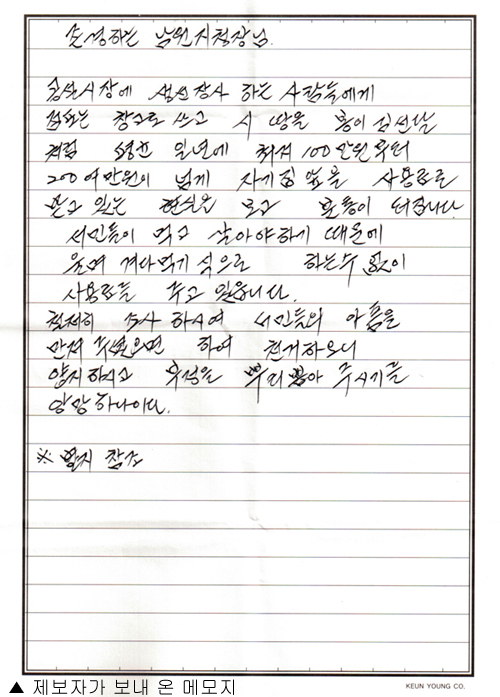 존경하는 남원지청장님.
공설시장에 생선장사 하는 사람들에게
점포는 창고로 쓰고 시 땅을 봉이 김선달
처럼 일년에 최저 100만원부터
200여만원이 넘게 자기집 앞을 사용료로
받고 있는 현실을 보고 분통이 터집니다.
서민들이 먹고 살아야하기 때문에
울며 겨자먹기 식으로 하는수 없이
사용료를 주고 있읍니다.
철저히 조사 하시여 서민들의 아픔을
만져 주셨으면 하여 하오니
양지하시고 부정을 뿌리뽑아 주시기를
앙망하나이다.
※ 별지 참조
▲ 제보자가 보내 온 메모지
KEUN YOUNG CO.